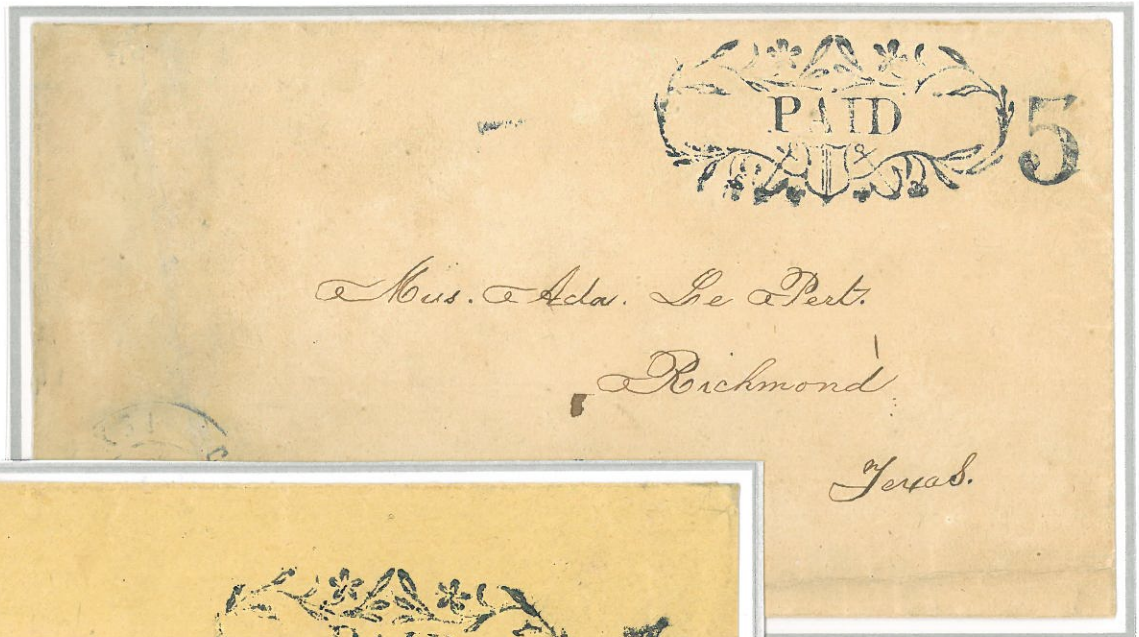 PAID 5
Mrs. Ada. Le Pert.
Richmond
Texas.
PAID